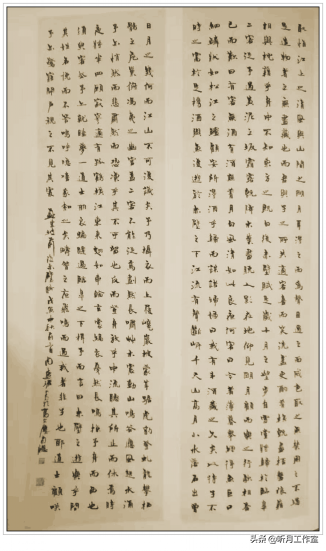 取惟江上之清風與山間之明月耳得之而為聲目遇之而成色取之無禁用之不竭
是造物者之無盡藏也而吾與子之所共適客喜而笑洗盞更酌肴核既盡杯盤狼藉
相與枕藉乎舟中不知東方之既白後赤壁賦是歲十月之望步自雪堂將歸於臨皋
二客從予過黃泥之坂霜露既降木葉盡脫人影在地仰見明月顧而樂之行歌相答
已而歎曰有客無酒有酒無肴月白風清如此良夜何客曰今者薄暮舉網得魚巨口
細鱗狀如松江之鱸顧安所得酒乎歸而謀諸婦婦曰我有斗酒藏之久矣以待子不
時之需於是攜酒與魚復遊於赤壁之下江流有聲斷岸千尺山高月小水落石出曾
日月之幾何而江山不可復識矣予乃攝衣而上履巉巖披蒙茸踞虎豹登虬龍攀棲
鶻之危巢俯馮夷之幽宮蓋二客不能從焉劃然長嘯草木震動山鳴谷應風起水涌
予亦悄然而悲肅然而恐凜乎其不可留也反而登舟放乎中流聽其所止而休焉時
夜將半四顧寂寥適有孤鶴橫江東來翅如車輪玄裳縞衣戛然長鳴掠予舟而西也
須臾客去予亦就睡夢一道士羽衣蹁躚過臨皋之下揖予而言曰赤壁之遊樂乎問
其姓名俯而不答嗚呼噫嘻我知之矣疇昔之夜飛鳴而過我者非子也耶道士顧笑
予亦驚寤開戶視之不見其處
头条 @昕月工作室